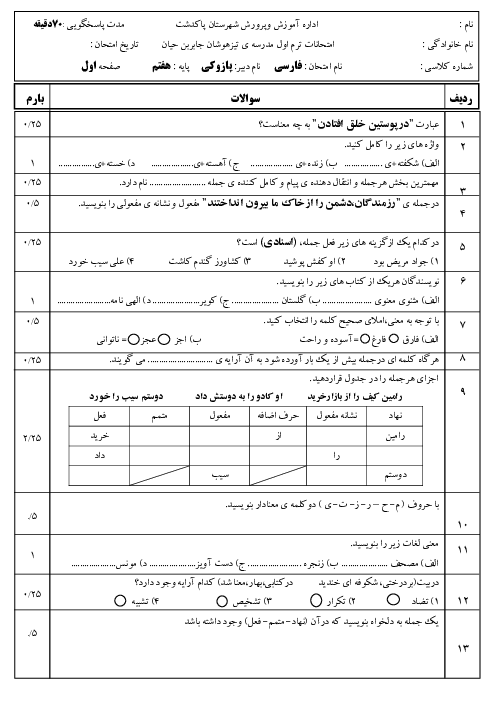 نام :
اداره آموزش وپرورش شهرستان پاکدشت
مدت پاسخگویی :۷۰دقیقه
نام خانوادگی :
امتحانات ترم اول مدرسه ی تیزهوشان جابربن حیان
تاریخ امتحان :
شماره کلاسی :
نام امتحان : فارسی
نام دبیر: بازوکی
پایه : هفتم
صفحه اول
ردیف سوالات بارم
۱ عبارت "درپوستین خلق افتادن" به چه معناست؟ ۰/۲۵
۲ واژه های زیر را کامل کنید.
الف) شکفته ی ................ ب) زنده ی ................ ج) آهسته ی................ د) خسته ی................ ۱
۳ مهمترین بخش هرجمله و انتقال دهنده ی پیام و کامل کننده ی جمله ...................... نام دارد. ۰/۲۵
۴ درجمله ی "رزمندگان،دشمن را ازخاک ما بیرون انداختند" مفعول و نشانه ی مفعولی را بنویسید. ۰/۵
۵ درکدام یک ازگزینه های زیر فعل جمله، (اسنادی) است؟ ۰/۲۵
۱) جواد مریض بود ۲) او کفش پوشید ۳) کشاورز گندم کاشت ۴) علی سیب خورد
۶ نویسندگان هریک از کتاب های زیر را بنویسید.
الف) مثنوی معنوی ................... ب) گلستان .................. ج) کویر.................. د) الهی نامه..................... ۱
۷ با توجه به معنی،املای صحیح کلمه را انتخاب کنید. ۰/۵
الف) فارق فارغ = آسوده و راحت ب) اجز عجز = ناتوانی
۸ هرگاه کلمه ای درجمله بیش از یک بار آورده شود به آن آرایه ی .......................... می گویند. ۰/۲۵
۹ اجزای هرجمله را در جدول قراردهید. ۲/۲۵
رامین کیف را از بازارخرید او کادو را به دوستش داد دوستم سیب را خورد
نهاد نشانه مفعول حرف اضافه مفعول متمم فعل
رامین از خرید
را داد
دوستم سیب
۱۰ با حروف (م-ح-ر-ز-ت-ی ) دوکلمه ی معنادار بنویسید. ۵/.
۱۱ معنی لغات زیر را بنویسید.
الف) مصحف .................. ب) زنجره ...................... ج) دست آویز.................. د) مونس.................. ۱
۱۲ دربیت(بردرختی،شکوفه ای خندید درکتابی،بهار،معنا شد) کدام آرایه وجود دارد؟ ۰/۲۵
۱) تضاد ۲) تکرار ۳) تشخیص ۴) تشبیه
۱۳ یک جمله به دلخواه بنویسید که درآن (نهاد-متمم-فعل) وجود داشته باشد ۵/.